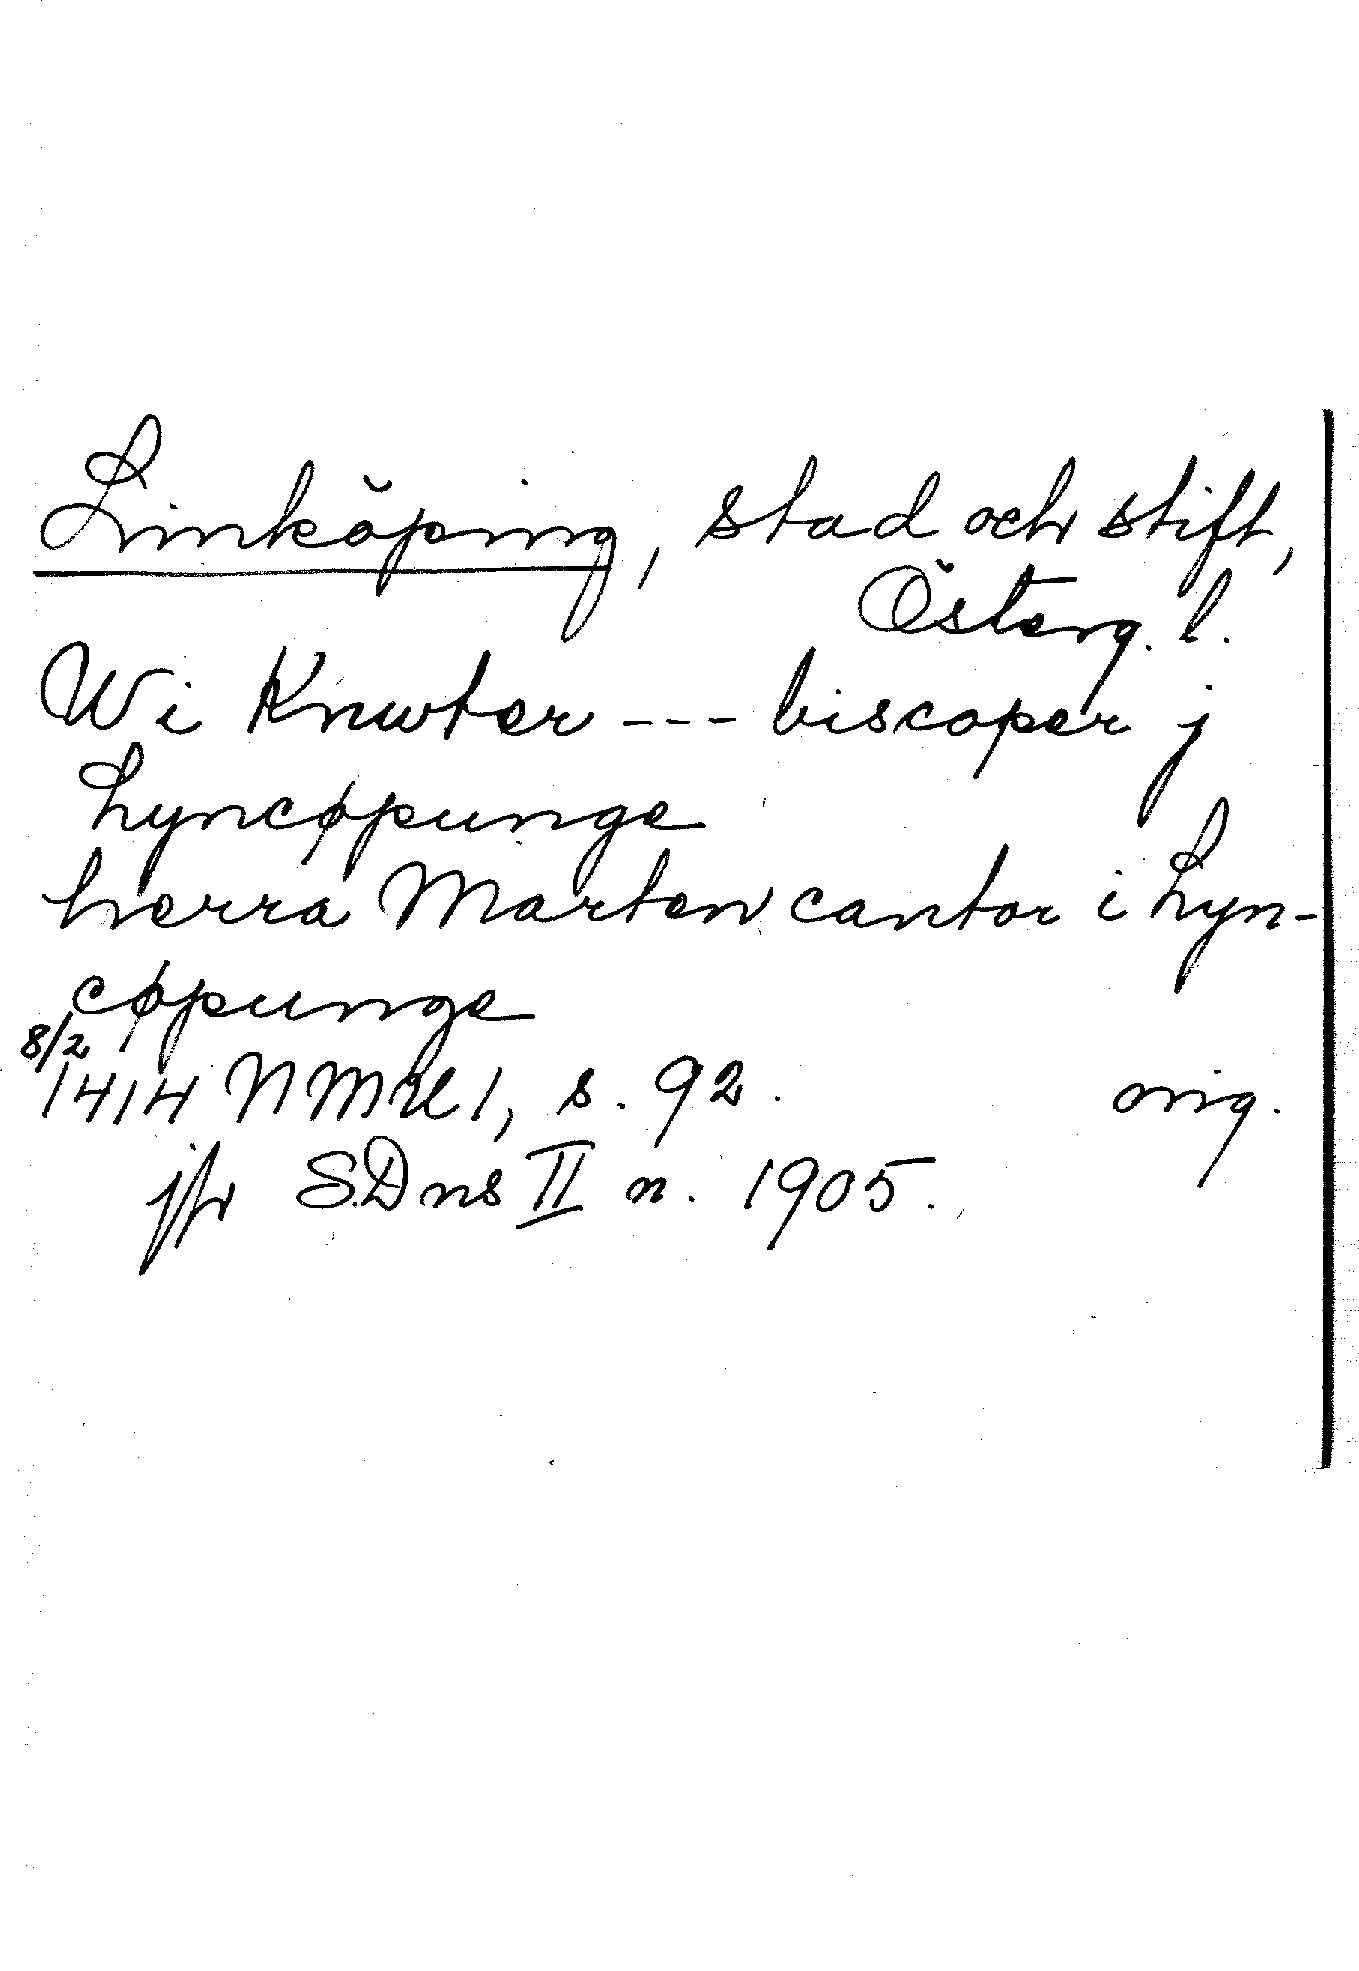 Linköping, stad och stift,
Österg. l.
Wi Knwter --- biscoper j
Lyncøpunge
herra Marten cantor i Lyn-
cøpunge
8/2
1414 NMU 1, s. 92. orig.
jfr SDns II n. 1905.